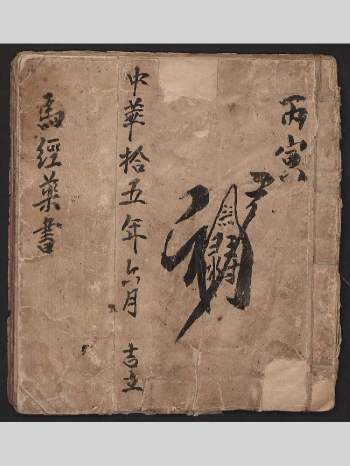 丙寅
中華拾五年六月 吉立
馬經藥書